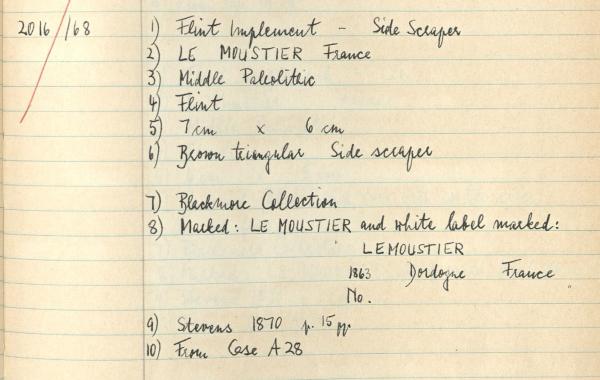 2016/68 1) Flint Implement - Side Scraper
2) LE MOUSTIER France
3) Middle Paleolithic
4) Flint
5) 7cm x 6 cm
6) Brown triangular Side scraper
7) Blackmore Collection
8) Marked: LE MOUSTIER and white label marked:
LEMOUSTIER
1863 Dordogne France
No.
9) Stevens 1870 p. 15 pp.
10) From Case A28